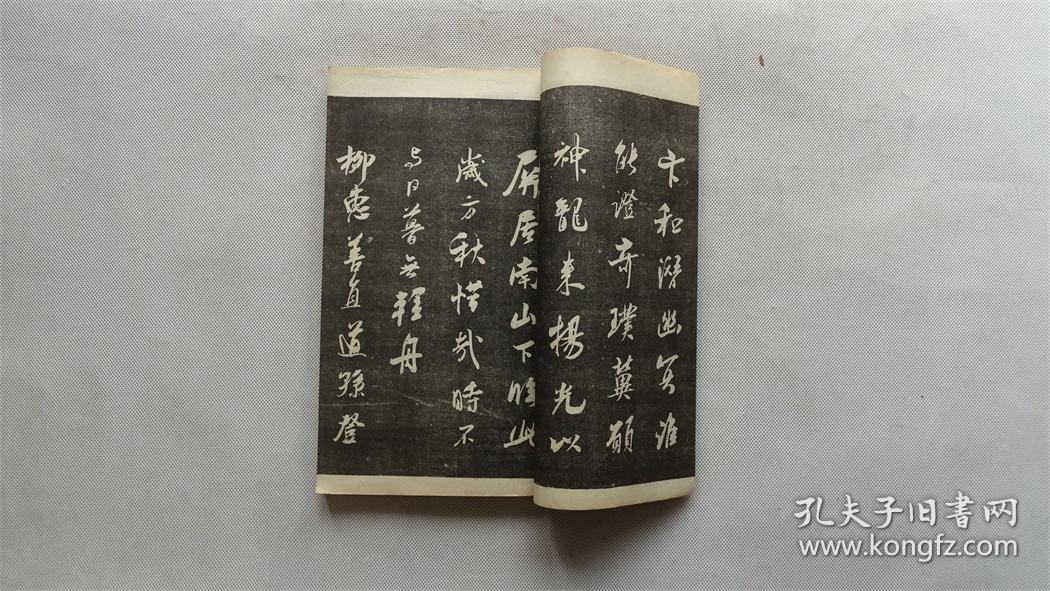 卞和潛幽冥誰
能證奇璞冀願
神龍來揚光以
屏居南山下臨此
歲方秋惜哉時不
與日暮無輕舟
柳惠善直道孫登
孔夫子旧书网
www.kongfz.com